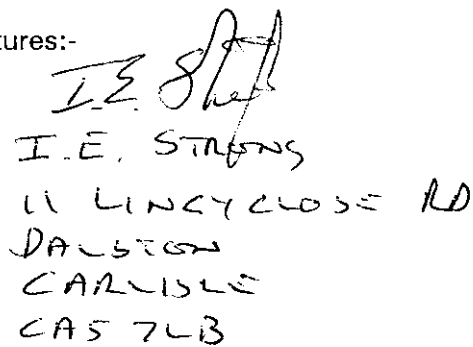 tures:-
I.E. Strong
I.E. STRONG
11 LINGYCLOSE RD
DALSTON
CARLISLE
CA5 7LB